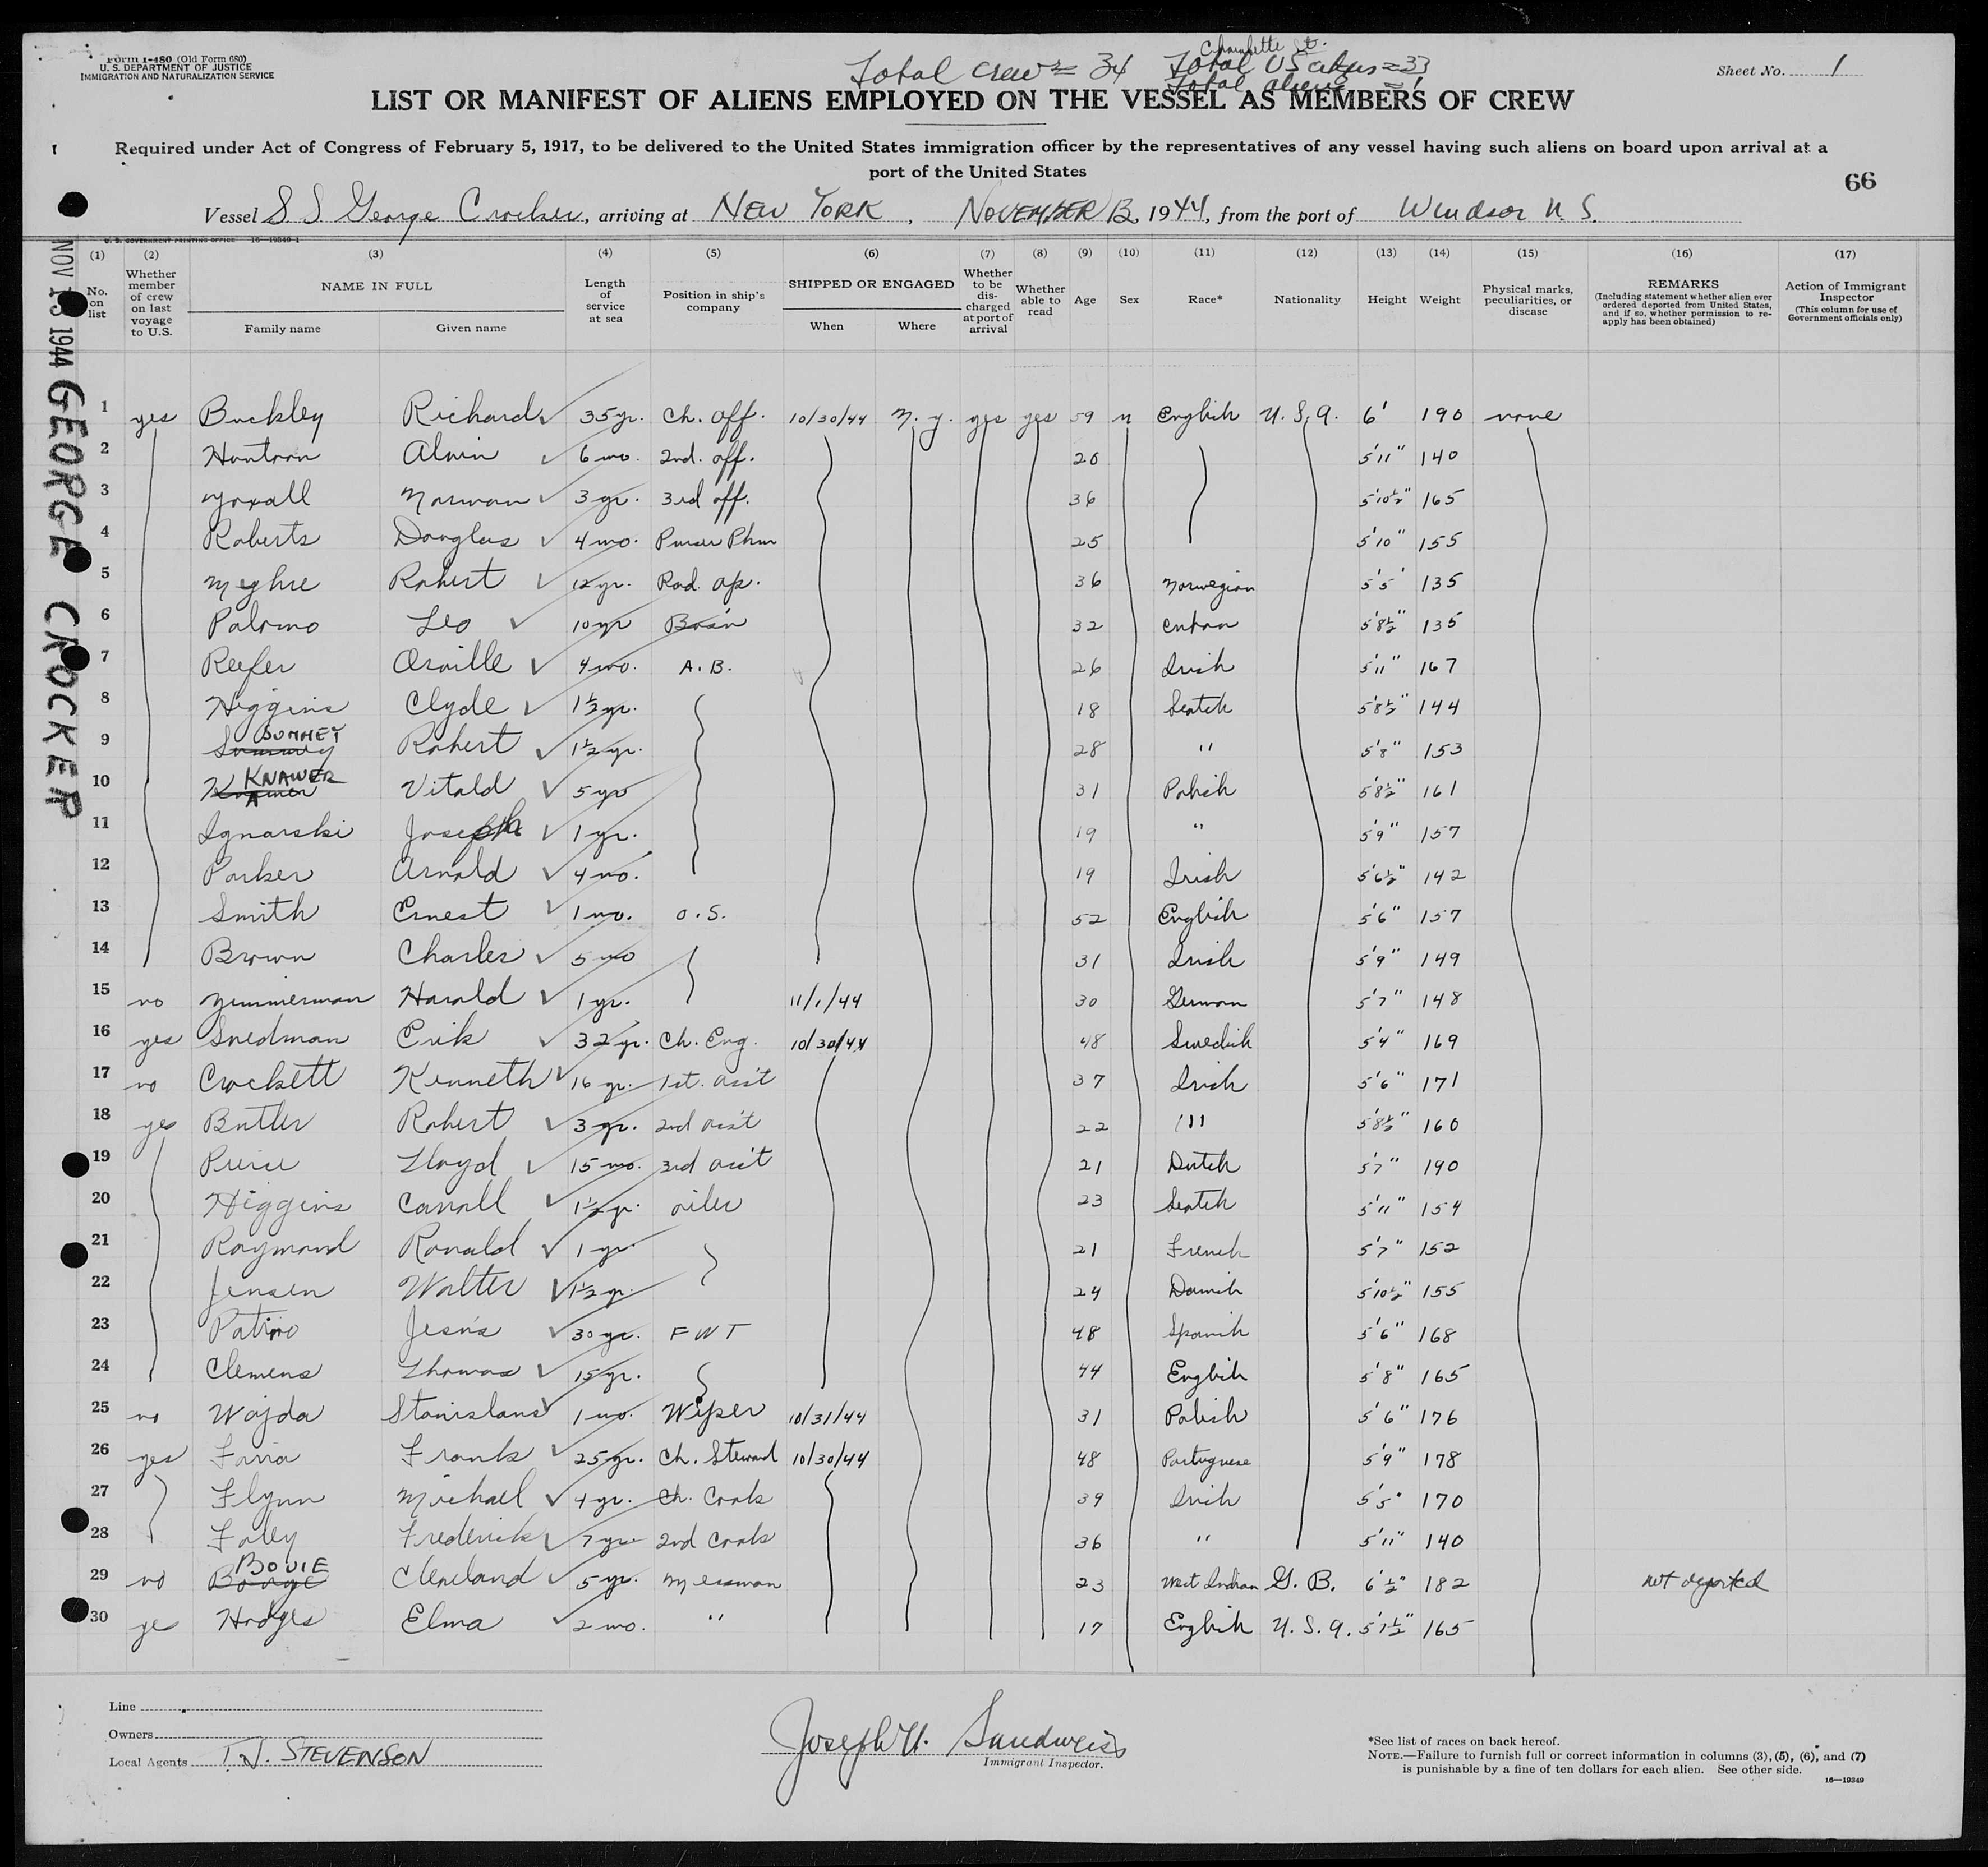 Form I-480 (Old Form 680)
U. S. DEPARTMENT OF JUSTICE
IMMIGRATION AND NATURALIZATION SERVICE
Total crew = 34
Total aliens = 1
Sheet No. 1
LIST OR MANIFEST OF ALIENS EMPLOYED ON THE VESSEL AS MEMBERS OF CREW
Required under Act of Congress of February 5, 1917, to be delivered to the United States immigration officer by the representatives of any vessel having such aliens on board upon arrival at a
port of the United States
66
Vessel S S George Crocker, arriving at NEW YORK, NOVEMBER 13, 1944, from the port of Windsor N. S.
U. S. GOVERNMENT PRINTING OFFICE 16-19349-1
NOV 13 1944 GEORGE CROCKER
(1) (2) (3) (4) (5) (6) (7) (8) (9) (10) (11) (12) (13) (14) (15) (16) (17)
No. on list
Whether member of crew on last voyage to U.S.
NAME IN FULL
Family name Given name
Length of service at sea
Position in ship's company
SHIPPED OR ENGAGED
When Where
Whether to be discharged at port of arrival
Whether able to read
Age
Sex
Race*
Nationality
Height
Weight
Physical marks, peculiarities, or disease
REMARKS
(Including statement whether alien ever ordered deported from United States, and if so, whether permission to reapply has been obtained)
Action of Immigrant Inspector
(This column for use of Government officials only)
1 yes Buckley Richard 35 yr. Ch. Off. 10/30/44 N. Y. yes yes 59 m English U. S. A. 6' 190 none
2 Alvin 6 mo. 2nd. off. 20 5'11" 140
3 Yoxall Norman 3 yr. 3rd off. 36 5'10½" 165
4 Roberts Douglas 4 mo. Purser Phm 25 5'10" 155
5 Myhre Robert 12 yr. Rad. op. 36 Norwegian 5'5' 135
6 Palermo Leo 10 yr Bos'n 32 Cuban 5'8½" 135
7 Reefer Orville 4 mo. A. B. 26 Irish 5'11" 167
8 Higgins Clyde 1½ yr. 18 Scotch 5'8½" 144
9 SUMMEY Robert 1½ yr. 28 " 5'8" 153
10 KNAWER Vitald 5 yr 31 Polish 5'8½" 161
11 Ignarski Joseph 1 yr. 19 " 5'9" 157
12 Parker Arnold 4 mo. 19 Irish 5'6½" 142
13 Smith Ernest 1 mo. O. S. 52 English 5'6" 157
14 Brown Charles 5 mo 31 Irish 5'9" 149
15 no Zimmerman Harold 1 yr. 11/1/44 30 German 5'7" 148
16 yes Svedman Erik 32 yr. Ch. Eng. 10/30/44 48 Swedish 5'4" 169
17 no Crockett Kenneth 16 yr. 1st. ass't 37 Irish 5'6" 171
18 yes Butler Robert 3 yr. 2nd ass't 22 " 5'8½" 160
19 Pierce Lloyd 15 mo. 3rd ass't 21 Dutch 5'7" 190
20 Higgins Carroll 1½ yr. oiler 23 Scotch 5'11" 154
21 Raymond Ronald 1 yr. 21 French 5'7" 152
22 Jensen Walter 1½ yr. 24 Danish 5'10½" 155
23 Patino Jesus 30 yr. FWT 48 Spanish 5'6" 168
24 Clemens Thomas 15 yr. 44 English 5'8" 165
25 no Wajda Stanislaus 1 mo. Wiper 10/31/44 31 Polish 5'6" 176
26 yes Faria Frank 25 yr. Ch. Steward 10/30/44 48 Portuguese 5'9" 178
27 Flynn Michael 4 yr. Ch. Cook 39 Irish 5'5" 170
28 Foley Frederick 7 yr. 2nd Cook 36 " 5'11" 140
29 no BOUIE Cleveland 5 yr. Messman 23 West Indian G. B. 6'½" 182 not deported
30 yes Hodges Elma 2 mo. " 17 English U. S. A. 5'7½" 165
Line
Owners
Local Agents T. J. STEVENSON
Joseph U. Sandweiss
Immigrant Inspector.
*See list of races on back hereof.
NOTE.—Failure to furnish full or correct information in columns (3), (5), (6), and (7)
is punishable by a fine of ten dollars for each alien. See other side.
16—19349